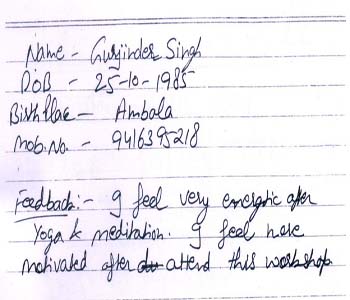 Name - Gurjinder Singh
DOB - 25-10-1985
Birth Place - Ambala
Mob. No. - 9416395218
Feedback :- I feel very energetic after
Yoga & meditation. I feel more
motivated after attend this workshop.